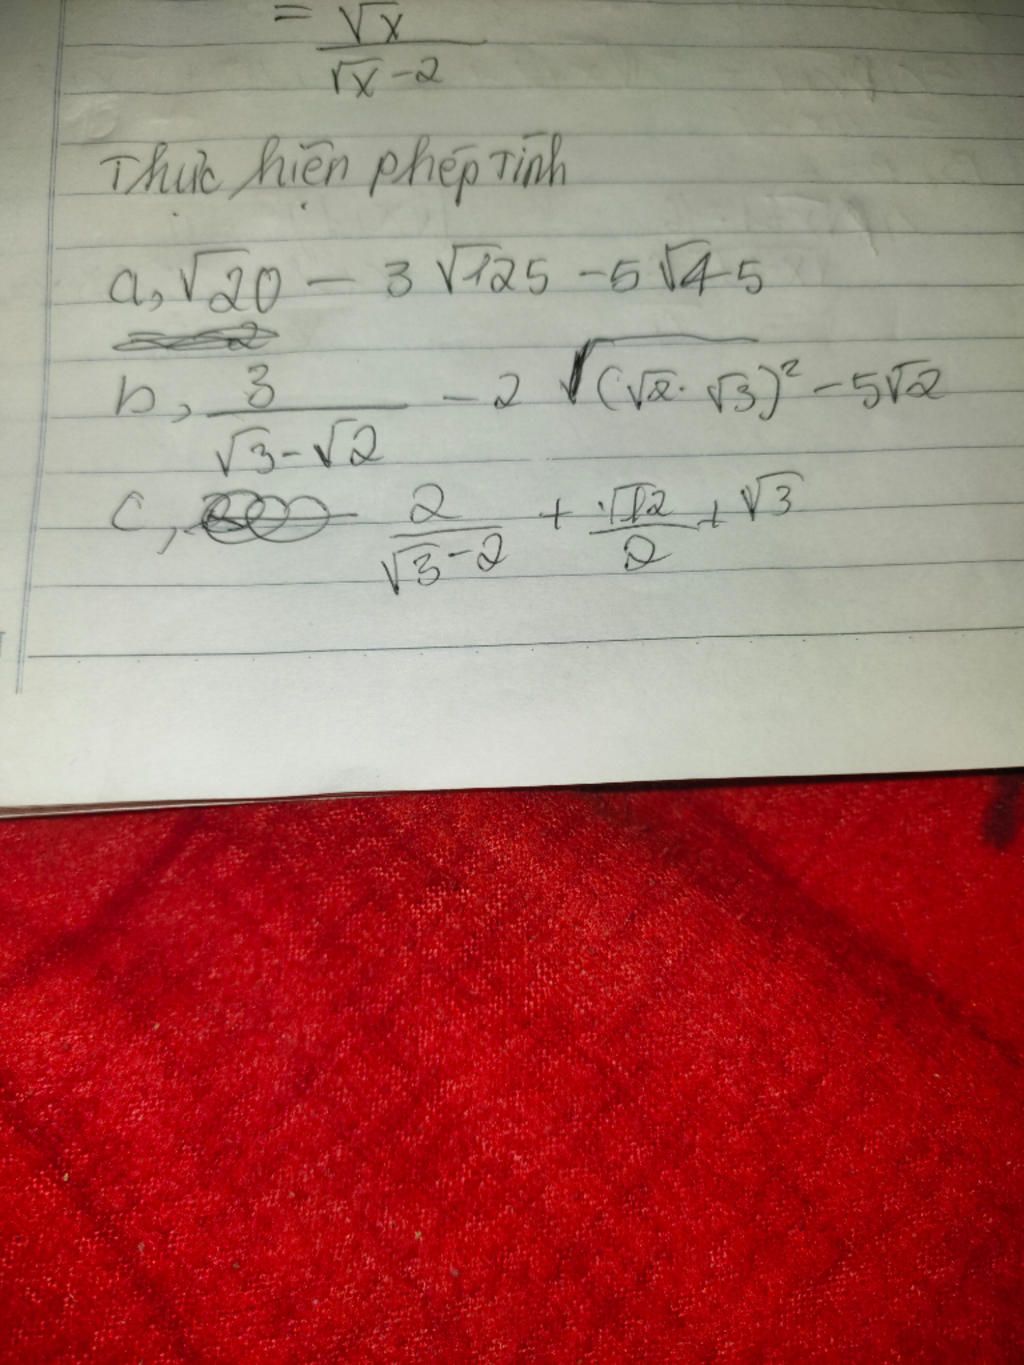 = √x / (√x - 2)
Thực hiện phép tính
a, √20 - 3√125 - 5√45
b, 3 / (√3 - √2) - 2√(√2 · √3)² - 5√2
c, 2 / (√3 - 2) + √12 / 2 + √3